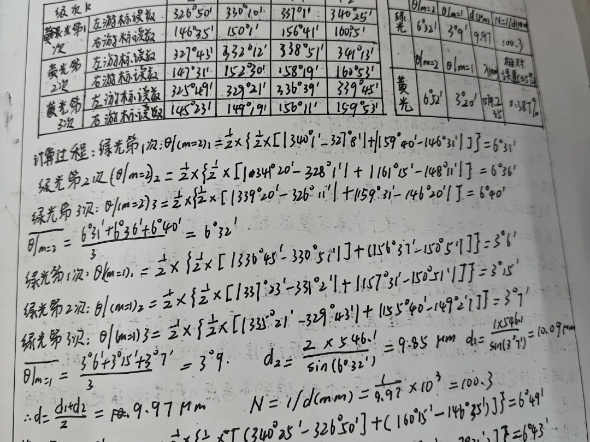 级次k
黄光第1次 左游标读数 326°50′ 330°10′ 337°1′ 340°25′
右游标读数 146°35′ 150°1′ 156°41′ 160°15′
黄光第2次 左游标读数 327°43′ 332°12′ 338°51′ 341°13′
右游标读数 147°31′ 152°30′ 158°19′ 160°53′
黄光第3次 左游标读数 325°49′ 329°21′ 336°39′ 339°45′
右游标读数 145°23′ 149°19′ 156°11′ 159°53′
绿光 θ|m=2 θ|m=1 d(μm) N=1/d(mm)
6°32′ 3°9′ 9.97 100.3
黄光 θ|m=2 θ|m=1 λ/nm 相对误差
6°52′ 3°20′ 0.387%
计算过程:绿光第1次:θ|(m=2)1=½×{½×[|340°1′-327°8′|+|159°40′-146°31′|]}=6°31′
绿光第2次(θ|m=2)2=½×{½×[|0341°20′-328°1′|+|161°15′-148°11′|]}=6°36′
绿光第3次:θ|(m=2)3=½×{½×[|339°20′-326°11′|+|159°31′-146°20′|]}=6°40′
θ|m=2=(6°31′+6°36′+6°40′)/3=6°32′
绿光第1次:θ|(m=1)1=½×{½×[|336°45′-330°51′|]+(|156°37′-150°51′|]}=3°6′
绿光第2次:θ|(m=1)2=½×{½×[|337°23′-331°2′|+|157°31′-150°51′|]}=3°15′
绿光第3次:θ|(m=1)3=½×{½×[|335°21′-329°43′|+|155°40′-149°21′|]}=3°7′
θ|m=1=(3°6′+3°15′+3°7′)/3=3°9′. d2=2×546.1/sin(6°32′)=9.85 μm d1=1×546.1/sin(3°7′)=10.09μm
∴d=(d1+d2)/2=9.97 μm N=1/d(mm)=1/9.97×10³=100.3
½×[(340°25′-326°50′]+(160°15′-146°35′)]}=6°49′
]}=6°43′